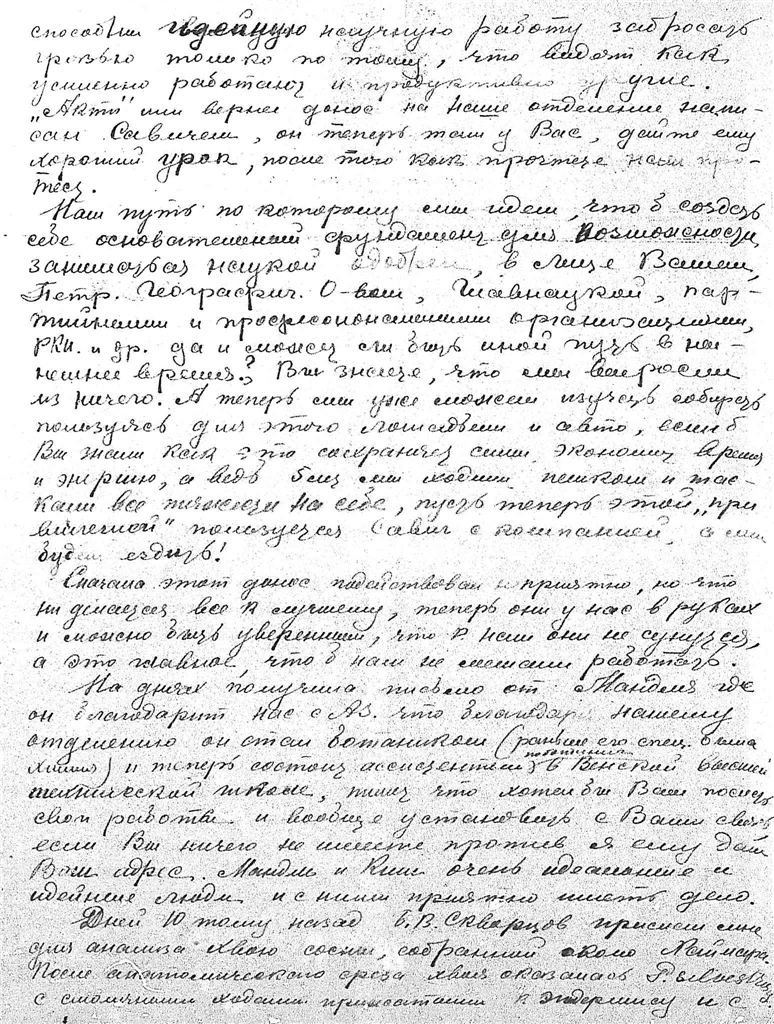 способны идейную научную работу забросать
грязью только по тому, что видят как
усиленно работают и продуктивно другие.
„Акт" или вернее донос на наше отделение напи-
сан Савичем, он теперь там у Вас, дайте ему
хороший урок, после того как прочтете наш про-
тест.
Наш путь по которому мы идем, что б создать
себе основательный фундамент для возможности
заниматься наукой одобрен, в лице Вашем,
Петр. Географич. О-вом, Главнаукой, пар-
тийными и профессиональными организациями,
РКИ. и др. да и может ли быть иной путь в ны-
нешнее время? Вы знаете, что мы выросли
из ничего. А теперь мы уже можем изучать собирать
пользуясь для этого лошадьми и авто, если б
Вы знали как это сохраняет силы, экономит время
и энергию, а ведь был мы ходили пешком и тас-
кали все тяжести на себе, пусть теперь этой „при
вилегией" пользуется Савич с компанией, а мы
будем ездить!
Сначала этот донос подействовал неприятно, но что
ни делается все к лучшему, теперь они у нас в руках
и можно быть уверенным, что к нам они не сунутся,
а это главное, что б нам не мешали работать.
На днях получила письмо от Мандля где
он благодарит нас с АЗ. что благодаря нашему
отделению он стал ботаником (раньше его спец. была
химия) и теперь состоит ассистентом в Венской высшей
технической школе, пишет что хотел бы Вам послать
свои работы и вообще установить с Вами связь
если Вы ничего не имеете против я ему дам
Ваш адрес. Мандль и Киш очень идеальные и
идейные люди и с ними приятно иметь дело.
Дней 10 тому назад Б.В. Скварцов прислал мне
для анализа хвою сосны, собранной около Хайлара.
После анатомического среза хвоя оказалась
с смоляными ходами прижатыми к эндермису и с